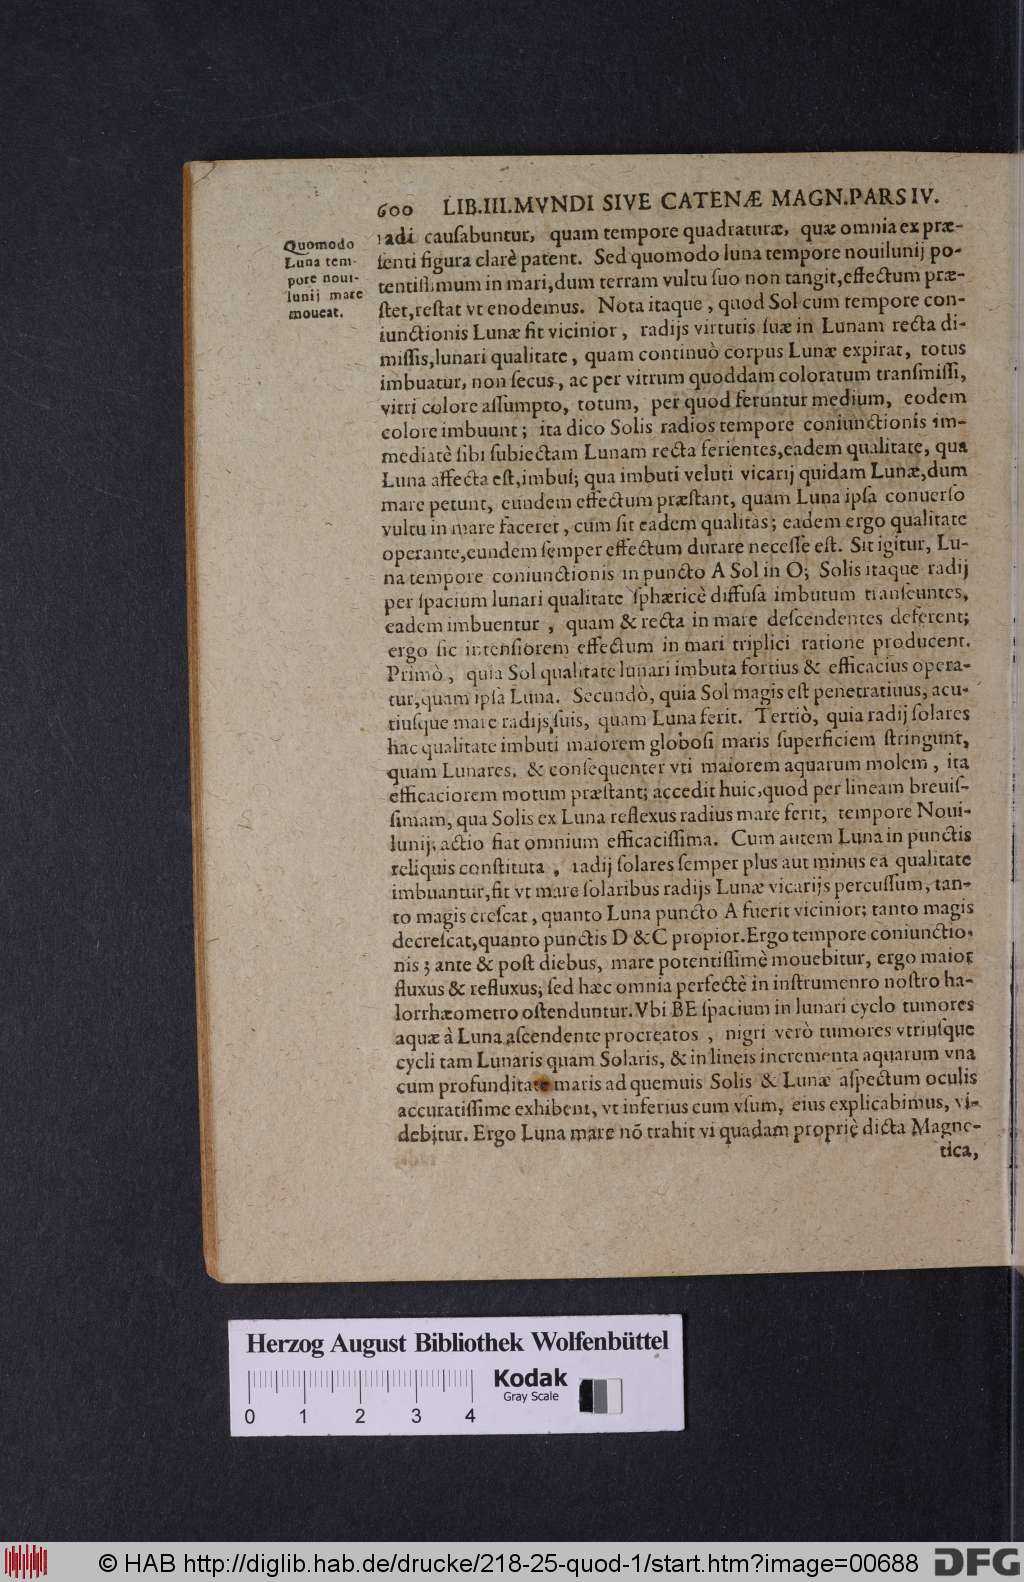 600 LIB.III.MVNDI SIVE CATENÆ MAGN.PARS IV.
Quomodo
Luna tem-
pore noui-
lunij mare
moueat.
radi cauſabuntur, quam tempore quadraturæ, quæ omnia ex præ-
ſenti figura clarè patent. Sed quomodo luna tempore nouilunij po-
tentiſſimum in mari,dum terram vultu ſuo non tangit,effectum præ-
ſtet,reſtat vt enodemus. Nota itaque, quod Sol cum tempore con-
iunctionis Lunæ fit vicinior, radijs virtutis ſuæ in Lunam recta di-
miſſis,lunari qualitate, quam continuò corpus Lunæ expirat, totus
imbuatur, non ſecus, ac per vitrum quoddam coloratum tranſmiſſi,
vitri colore aſſumpto, totum, per quod feruntur medium, eodem
colore imbuunt; ita dico Solis radios tempore coniunctionis im-
mediatè ſibi ſubiectam Lunam recta ferientes,eadem qualitate, qua
Luna affecta eſt,imbui; qua imbuti veluti vicarij quidam Lunæ,dum
mare petunt, eundem effectum præſtant, quam Luna ipſa conuerſo
vultu in mare faceret, cum ſit eadem qualitas; eadem ergo qualitate
operante,eundem ſemper effectum durare neceſſe eſt. Sit igitur, Lu-
na tempore coniunctionis in puncto A Sol in O; Solis itaque radij
per ſpacium lunari qualitate ſphæricè diffuſa imbutum tranſeuntes,
eadem imbuentur, quam & recta in mare deſcendentes deferent;
ergo ſic intenſiorem effectum in mari triplici ratione producent.
Primò, quia Sol qualitate lunari imbuta fortius & efficacius opera-
tur,quam ipſa Luna. Secundò, quia Sol magis eſt penetratiuus, acu-
tiuſque mare radijs ſuis, quam Luna ferit. Tertiò, quia radij ſolares
hac qualitate imbuti maiorem globoſi maris ſuperficiem ſtringunt,
quam Lunares, & conſequenter vti maiorem aquarum molem, ita
efficaciorem motum præſtant; accedit huic,quod per lineam breuiſ-
ſimam, qua Solis ex Luna reflexus radius mare ferit, tempore Noui-
lunij; actio fiat omnium efficaciſſima. Cum autem Luna in punctis
reliquis conſtituta, radij ſolares ſemper plus aut minus ea qualitate
imbuantur,fit vt mare ſolaribus radijs Lunæ vicarijs percuſſum, tan-
to magis creſcat, quanto Luna puncto A fuerit vicinior; tanto magis
decreſcat,quanto punctis D & C propior.Ergo tempore coniunctio-
nis 3 ante & poſt diebus, mare potentiſſimè mouebitur, ergo maior
fluxus & refluxus; ſed hæc omnia perfectè in inſtrumenro noſtro ha-
lorrhæometro oſtenduntur.Vbi BE ſpacium in lunari cyclo tumores
aquæ à Luna aſcendente procreatos, nigri verò tumores vtriuſque
cycli tam Lunaris quam Solaris, & in lineis incrementa aquarum vna
cum profunditate maris ad quemuis Solis & Lunæ aſpectum oculis
accuratiſſime exhibent, vt inferius cum vſum, eius explicabimus, vi-
debitur. Ergo Luna mare nõ trahit vi quadam propriè dicta Magne-
tica,
Herzog August Bibliothek Wolfenbüttel
Kodak
Gray Scale
0 1 2 3 4
© HAB http://diglib.hab.de/drucke/218-25-quod-1/start.htm?image=00688
DFG